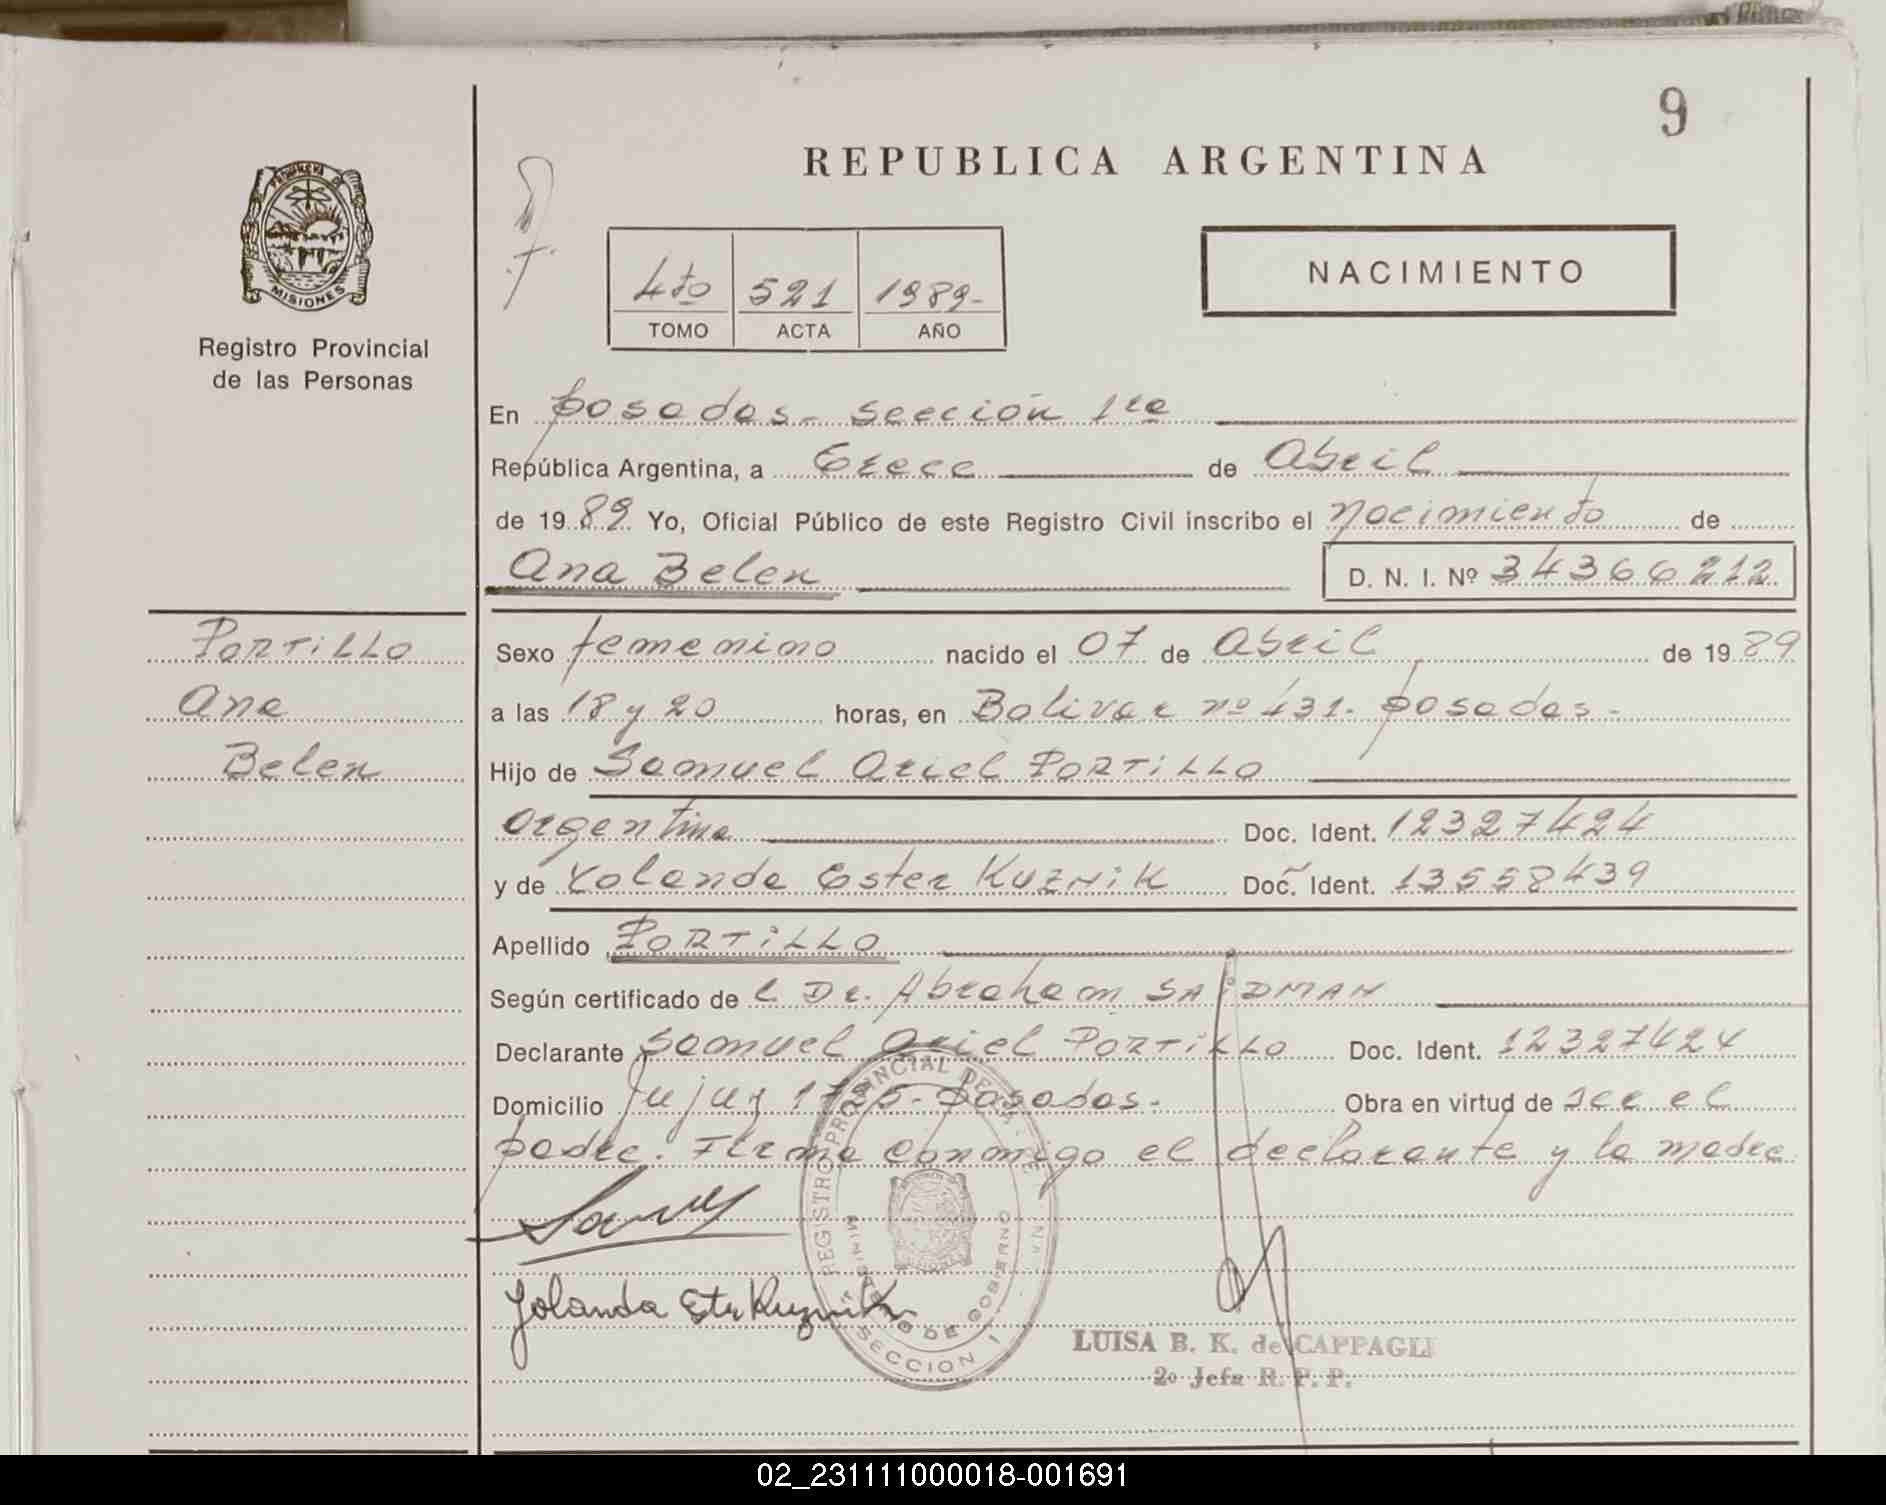 9
REPUBLICA ARGENTINA
PROVINCIA DE
MISIONES
Registro Provincial
de las Personas
4to 521 1989-
TOMO ACTA AÑO
NACIMIENTO
En Posadas- sección 1ra
República Argentina, a trece de Abril
de 1989 Yo, Oficial Público de este Registro Civil inscribo el nacimiento de
Ana Belen D. N. I. Nº 34366212
PORTILLO
Ana
Belen
Sexo femenino nacido el 07 de Abril de 1989
a las 18 y 20 horas, en Bolivar nº 431- posadas-
Hijo de Samuel Ariel PORTILLO
argentina Doc. Ident. 12327424
y de Yolanda Ester KUZNIK Doc. Ident. 13558439
Apellido PORTILLO
Según certificado de l Dr. Abraham SAIDMAN
Declarante Samuel Ariel PORTILLO Doc. Ident. 12327424
Domicilio Jujuy 1725- posadas- Obra en virtud de ser el
padre. Firma conmigo el declarante y la madre
REGISTRO PROVINCIAL DE
MINISTERIO DE GOBIERNO
SECCION 1
Yolanda Ester Kuznik
LUISA B. K. de CAPPAGLI
2º Jefa R. P. P.
02_231111000018-001691